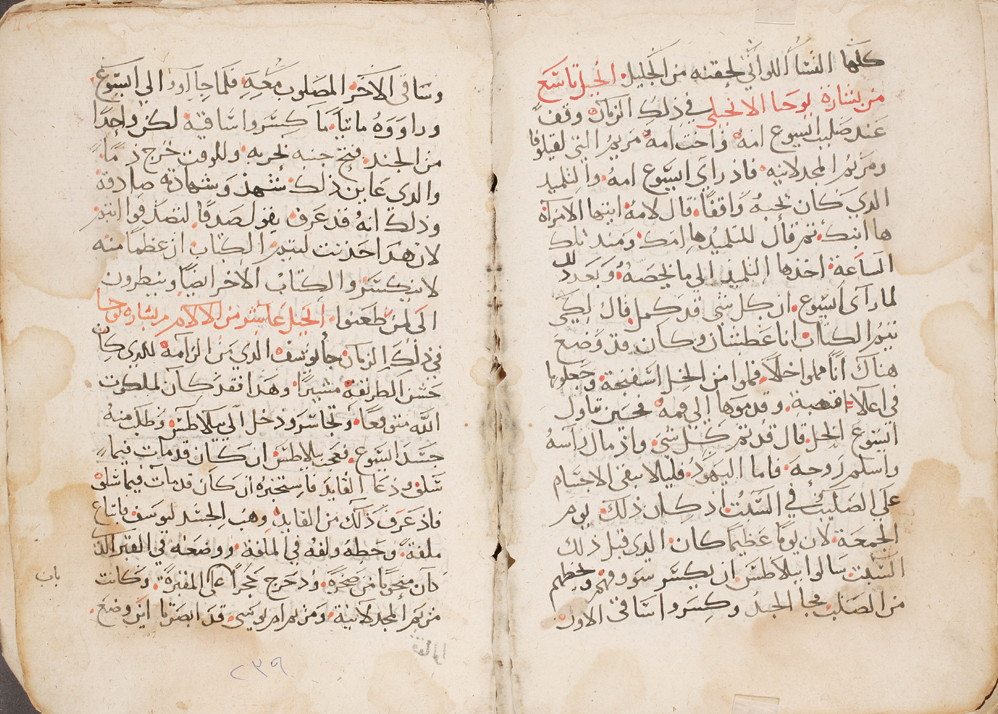 كلها النسا اللواتي لحقنه من الجليل. انجيل تاسع
من بشارة يوحنا الانجيلي في ذلك الزمان وقف
عند صليب ايسوع امه واخت امه مريم التي لقليوفا
ومريم المجدلانيه فاذ راى ايسوع امه والتلميد
الدي كان يحبه واقفا قال لامه ايتها الامراة
ها ابنك ثم قال للتلميد ها امك ومند تلك
الساعة اخدها التلميد الى ما يخصه وبعد دلك
لما راى ايسوع ان كل شي قد كمل قال لكي
يتم الكتاب انا عطشان وكان قد وضع
هناك انا مملوا خلا فملوا من الخل اسفنجة وجعلوها
في اعلا قصبة وقدموها الى فمه فحين تناول
ايسوع الخل قال قد تم كل شي واذ مال راسه
واسلم روحه فاما اليهود فليلا تبقى الاجسام
على الصليب في السبت اد كان ذلك يوم
الجمعة لان يوما عظيما كان الدي قبل ذلك
السبت سالوا بيلاطس ان يكسر سووقهم ويحطهم
من الصلب فجا الجند وكسروا ساقي الاول
وساقي الاخر المصلوب معه فلما جا آوو الى ايسوع
وراووه مايتا ما كسروا ساقيه لكن واحدا
من الجند فتح جنبه بحربه وللوقت خرج دم وما
والدي عاين ذلك شهد وشهادته صادقة
وذلك انه قد عرف يقول صدقا لتصدقوا انتم
لان هدا حدث ليتم الكتاب ان عظما منه
لا ينكسر والكتاب الاخر ايضا وينظرون
الى من طعنوا. انجيل عاشر من الالام من بشارة يوحنا
في ذلك الزمان جا يوسف الدي من الرامة للدي كان
حسن الطريقة مشيرا وهدا فقد كان لملكوت
الله متوقعا وتجاسر ودخل الى بيلاطس وطلب منه
جسد ايسوع فعجب بيلاطس ان كان قد مات فيما
سلف ودعا القايد فاستخبره ان كان قد مات فيما سلف
فاذ عرف ذلك من القايد وهب الجسد ليوسف فابتاع
ملفة وحطه ولفه في الملفة ووضعه في القبر الد
كان منحوتا من صخرة ودحرج حجرا على المقبرة وكانت
مريم المجدلانية ومريم ام يوسى قد ابصرتا اين وضع
باب
٢٣٩